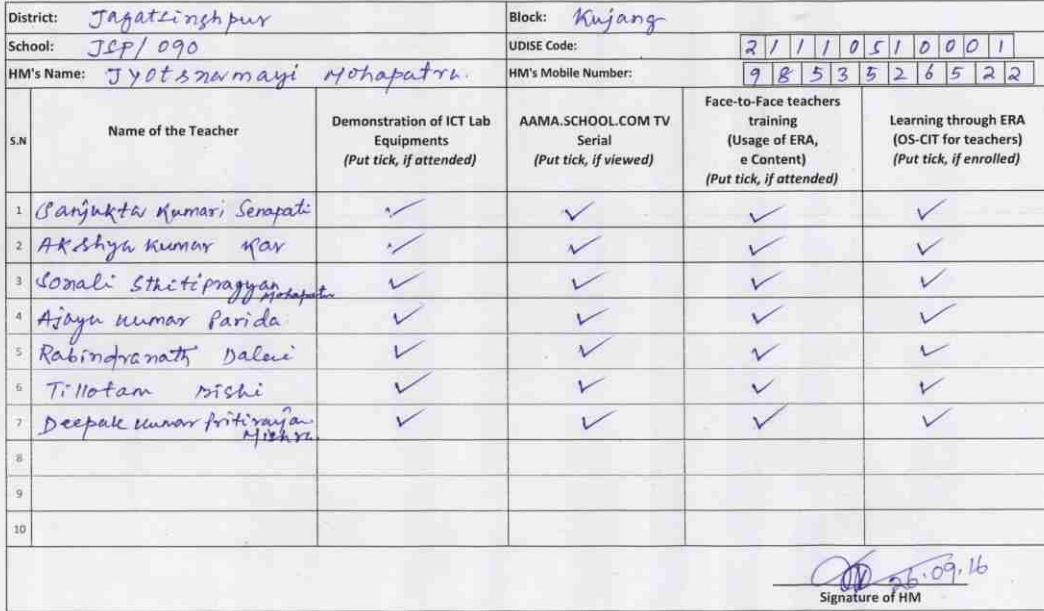 District: Jagatsinghpur Block: Kujang
School: JSP/090 UDISE Code: 21110510001
HM's Name: Jyotsnamayi Mohapatra. HM's Mobile Number: 9853526522
S.N Name of the Teacher Demonstration of ICT Lab Equipments (Put tick, if attended) AAMA.SCHOOL.COM TV Serial (Put tick, if viewed) Face-to-Face teachers training (Usage of ERA, e Content) (Put tick, if attended) Learning through ERA (OS-CIT for teachers) (Put tick, if enrolled)
1 Sanjukta Kumari Senapati ✓ ✓ ✓ ✓
2 Akshya Kumar Kar ✓ ✓ ✓ ✓
3 Sonali Sthitipragyan Mohapatra ✓ ✓ ✓ ✓
4 Ajaya Kumar Parida ✓ ✓ ✓ ✓
5 Rabindranath Dalei ✓ ✓ ✓ ✓
6 Tillotam Rishi ✓ ✓ ✓ ✓
7 Deepak Kumar Pritiranjan Mishra ✓ ✓ ✓ ✓
8
9
10
26.09.16
Signature of HM